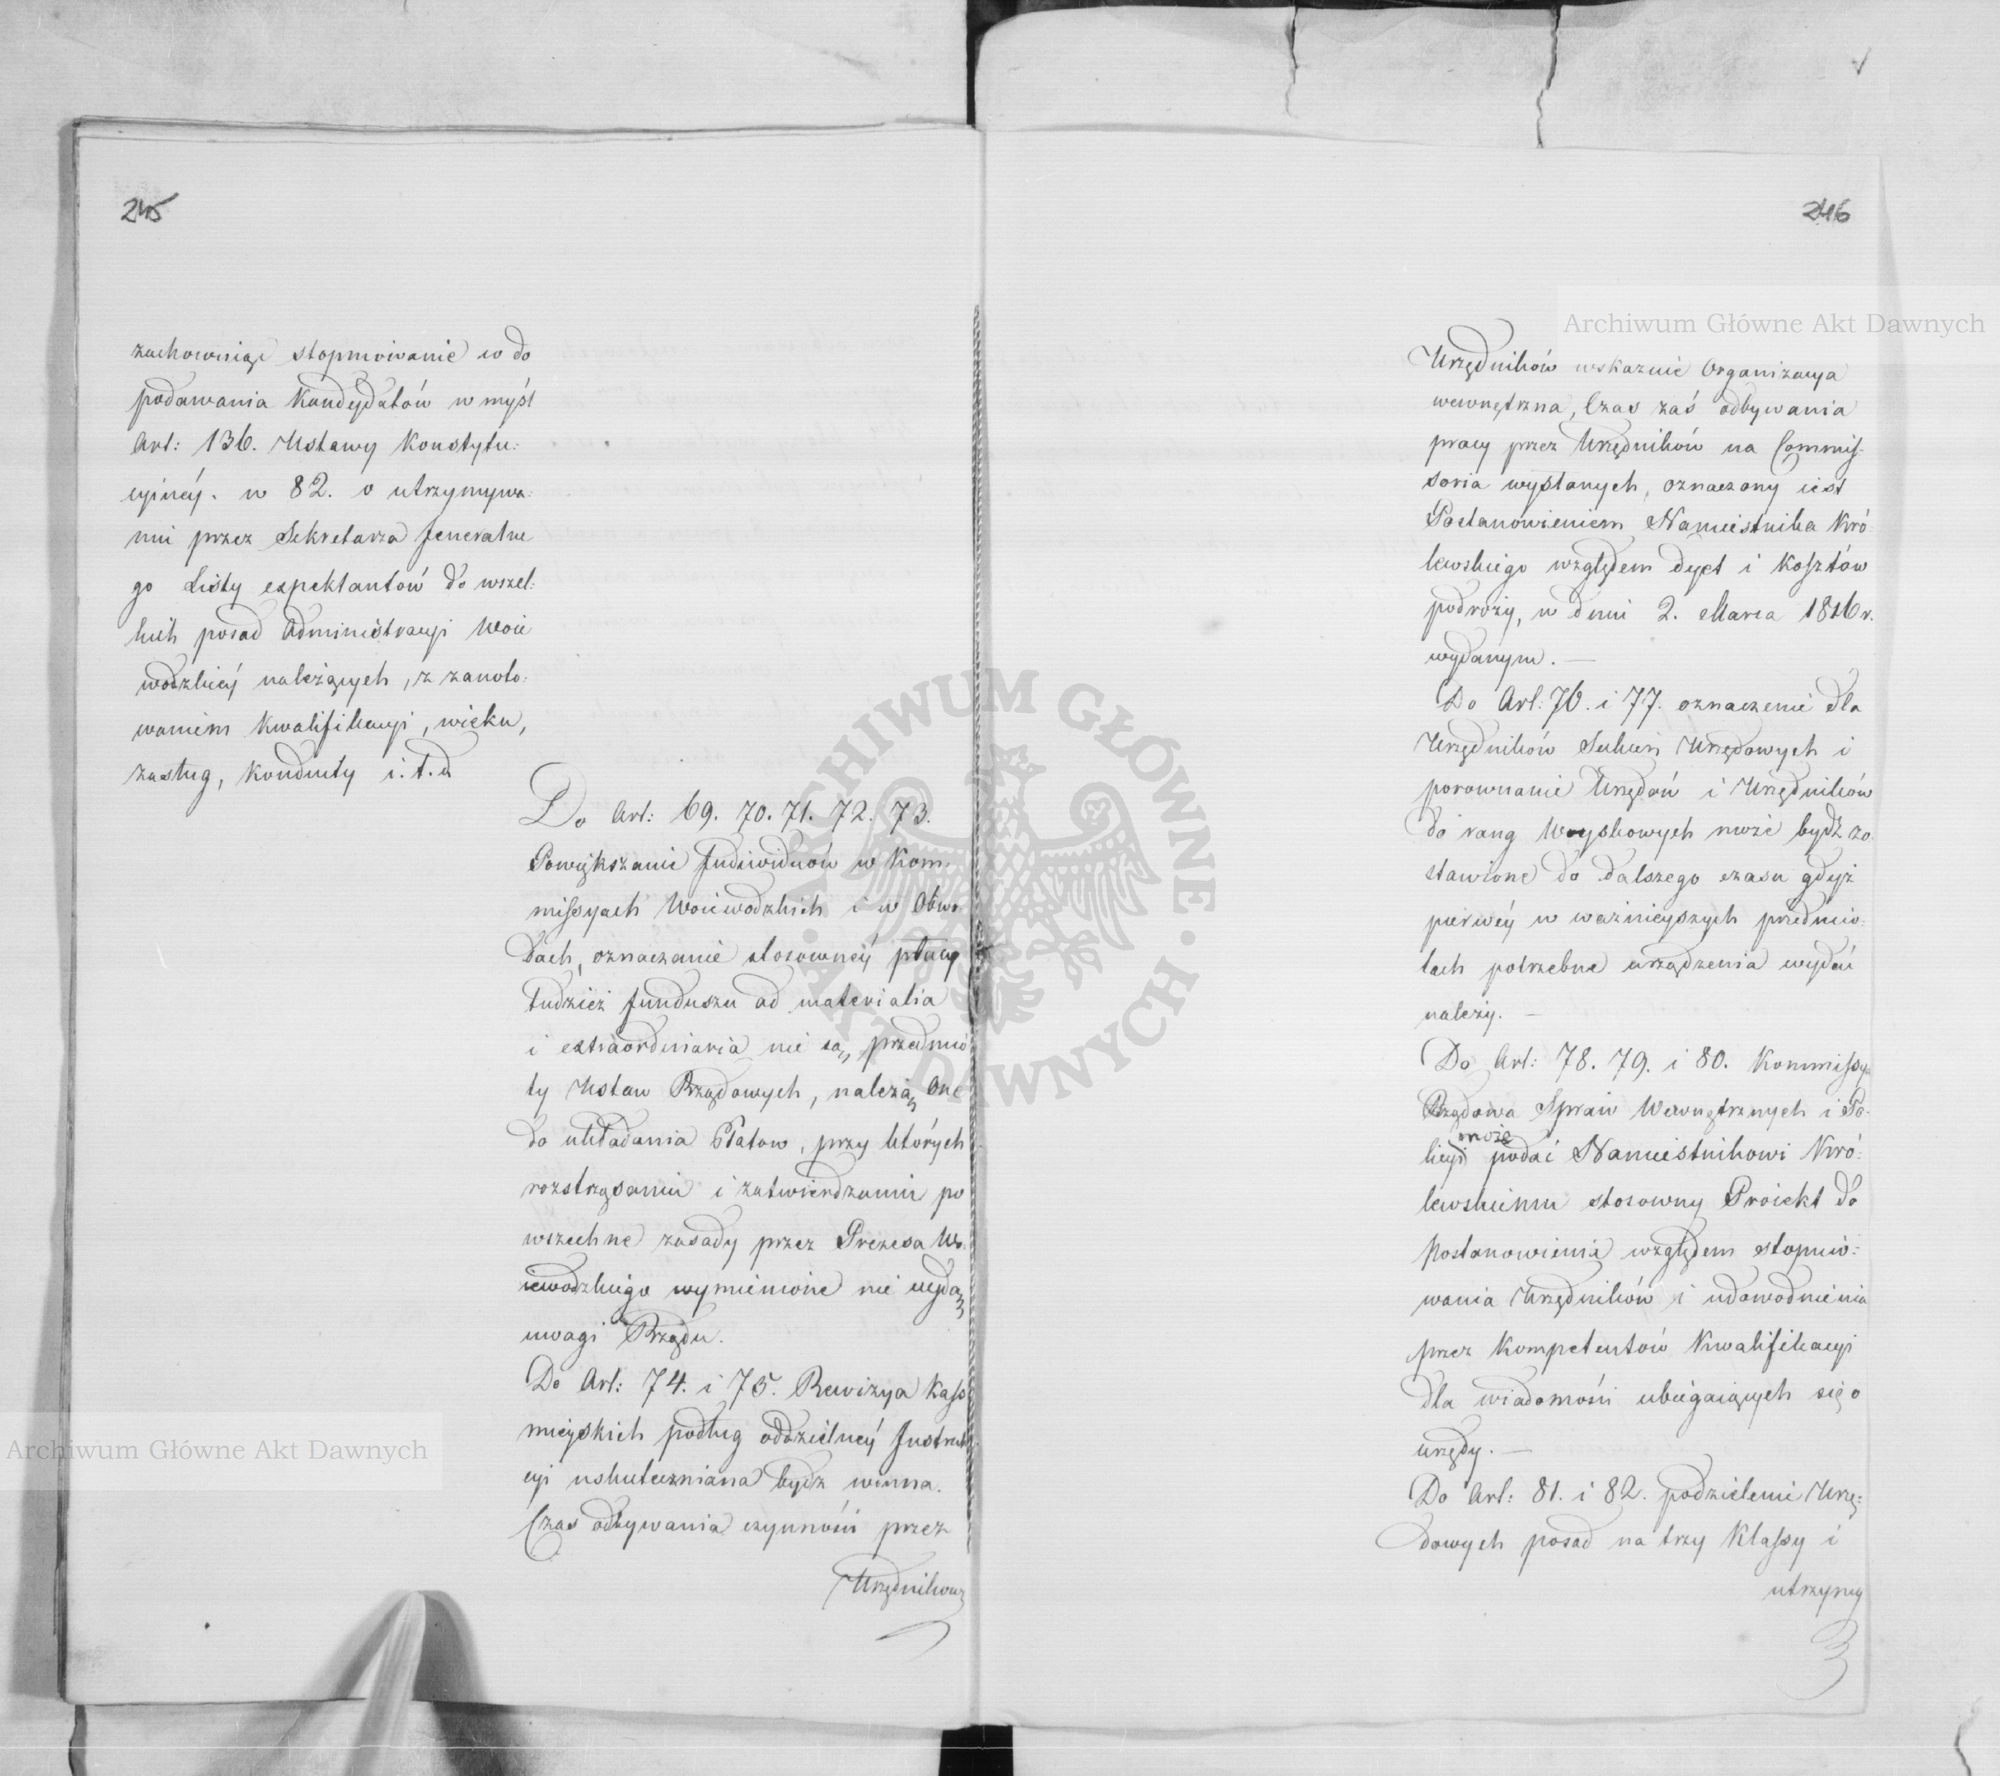 245
zachowuiąc stopniowanie w do
podawania Kandydatów w myśl
Art: 136. Ustawy Konstytu:
cyinéy. w 82. o utrzymywa:
niu przez Sekretarza Jeneralne
go Listy expektantów do wszel:
kich posad Administracyi Woie
wodzkiéy należących, z zanoto:
waniem kwalifikacyi, wieku,
zasług, konduity i.t.d
Do Art: 69. 70. 71. 72. 73.
Powiększanie Indiwiduów w Kom:
missyach Woiewodzkich i w Obwo
dach, oznaczanie stosownéy płacy
tudzież funduszu ad materialia
i extraordinaria nie są, przedmio
ty Ustaw Rządowych, należą one
do układania Etatow, przy których
rozstrząsaniu i zatwierdzaniu po
wszechne zasady przez Prezesa Wo:
iewodzkiego wymienione nie uydą
uwagi Rządu.
Do Art: 74. i 75. Rewizya Kass
mieyskich podług oddzielnéy Instruk
cyi uskuteczniana bydź winna.
Czas odbywania czynności przez
Urzędnikow
246
Urzędników wskaznie Organizacya
wewnętrzna, Czas zaś odbywania
pracy przez Urzędników na Commis:
soria wysłanych, oznaczony iest
Postanowieniem Namiestnika Kró
lewskiego względem dyet i Kosztów
podroży, w dniu 2. Marca 1816 r.
wydanym. —
Do Art: 76. i 77. oznaczenie dla
Urzędników Sukien Urzędowych i
porownanie Urzędów i Urzędników
do rang Woyskowych może bydź zo
stawione do dalszego czasu gdyż
pierwéy w ważnieyszych przedmio:
tach potrzebne urządzenia wydać
należy. —
Do Art: 78. 79. i 80. Kommissya
Rządowa Spraw Wewnętrznych i Po:
licyi może podać Namiestnikowi Kró:
lewskiemu stosowny Proiekt do
Postanowienia względem stopnio:
wania Urzędników i udowodnienia
przez Kompetentów Kwalifikacyi
dla wiadomości ubiegaiących się o
urzędy. —
Do Art: 81. i 82. podzielenie Urzę:
dowych posad na trzy Klassy i
utrzymy
Archiwum Główne Akt Dawnych
Archiwum Główne Akt Dawnych
ARCHIWUM GŁÓWNE · AKT DAWNYCH ·